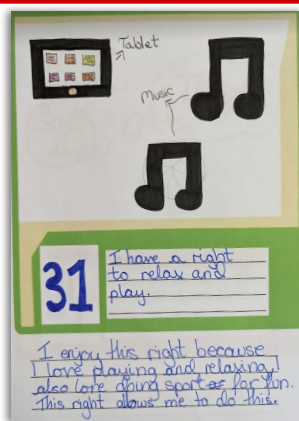 Tablet
Music
31
I have a right
to relax and
play.
I enjoy this right because
I love playing and relaxing. I
also love doing sport for fun.
This right allows me to do this.